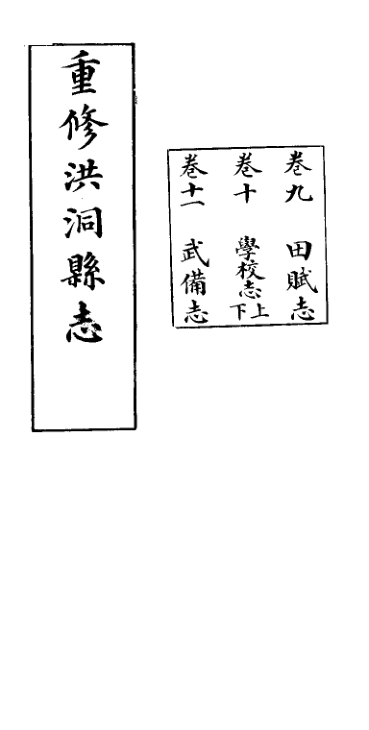 重修洪洞縣志
卷九 田賦志
卷十 學校志上下
卷十一 武備志